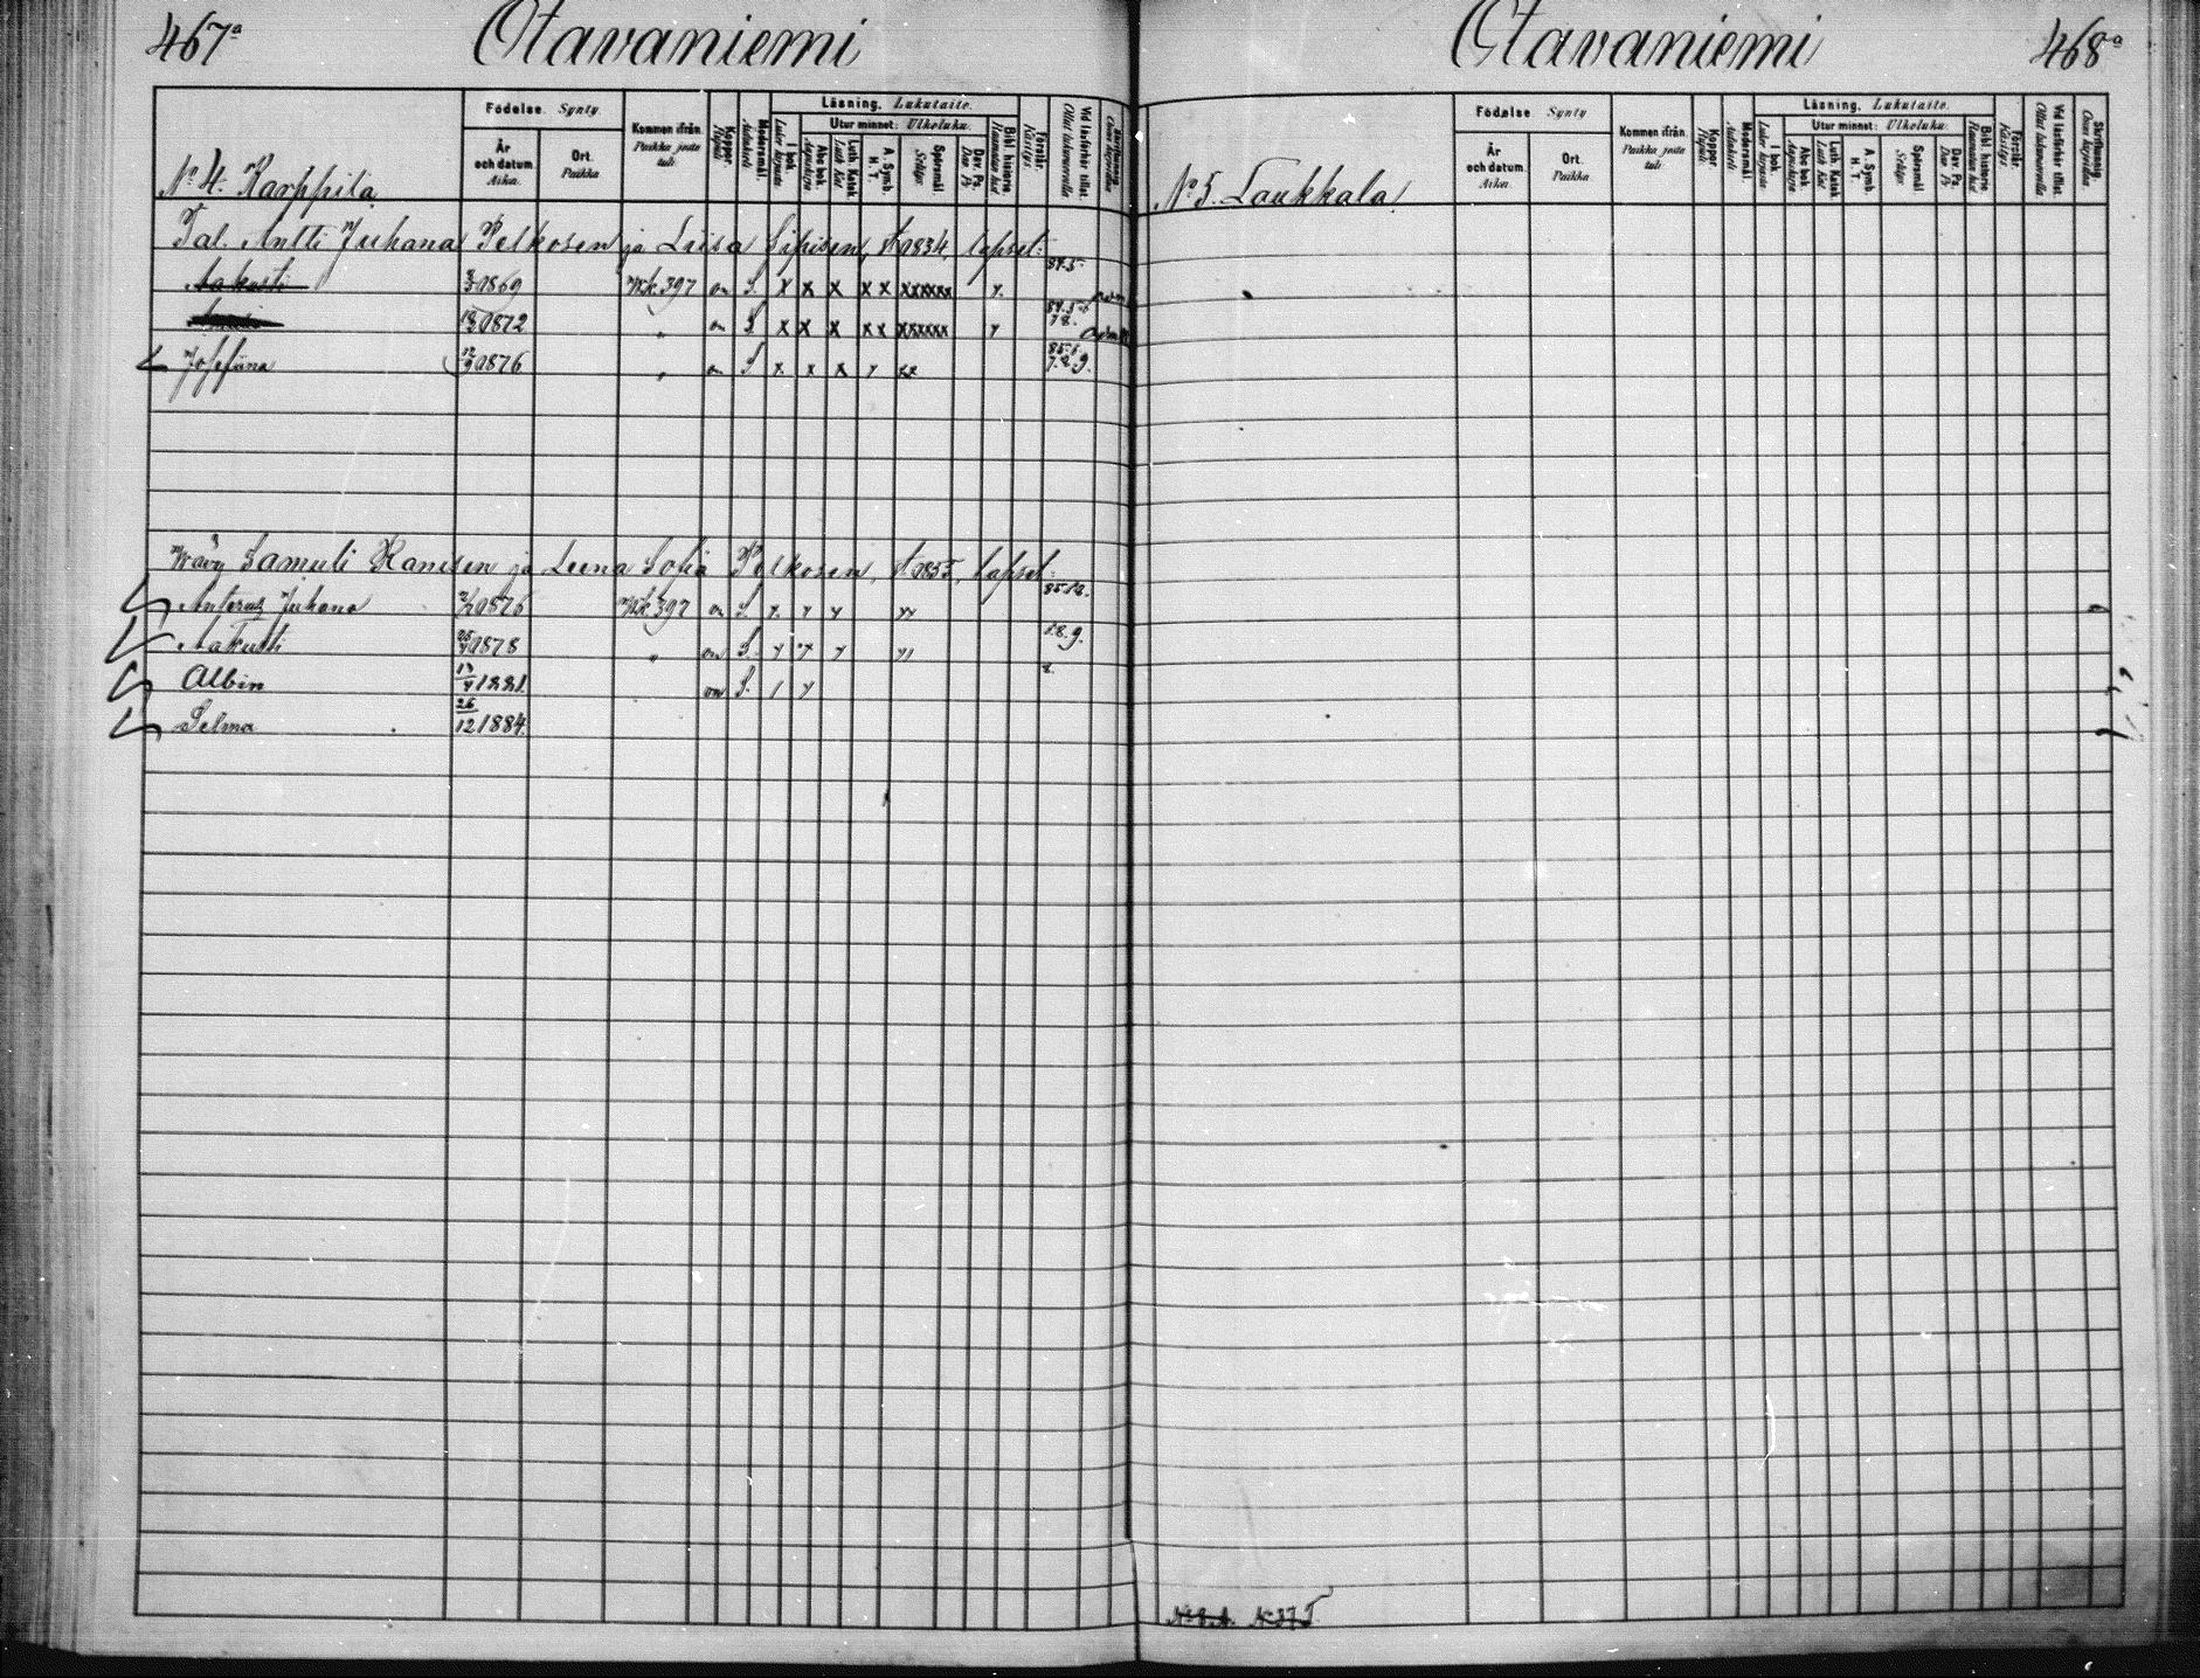 467a Otavaniemi
Födelse. Synty
Kommen ifrån. Paikka josta tuli.
Koppor. Rupuli.
Modersmål. Äidinkieli
Läsning. Lukutaito.
I bok. Luku kirjasta
Utur minnet: Ulkoluku.
Abc bok. Aapiskirja
Luth. Katek. Luth. Kat.
A. Symb. H. T.
Spörsmål. Selitys.
Dav. Ps. Dav. Ps.
Bibl. historie. Raamatun hist.
Förståer. Käsitys.
Vid läsförhör tillst. Ollut lukuvuorolla
År och datum. Aika.
Ort. Paikka
No 4. Karppila
Tal. Antti Juhana Pelkosen ja Liisa Sipisen, s. 1834, lapset:
Aakusti 1869 Rk. 397 on S. x x x x x xxxxxx x. 84.5.
1872 " on S x x x x x xxxxxx x 84.5 78.
Josefiina 12/9 1876 " on S x. x x x xx 85.1. 7.8.9.
Wäv. Samuli Hanisen ja Leena Sofia Pelkosen, s. 1855, lapset:
Anterus Juhana 1876 Rk 397 on S. x. x x xx 85.18.
Aakusti 1878 " on S. x x x x, 1.8.9.
Albin 1881. on S. / x
Selma 26/12 1884.
Otavaniemi 468a
Födelse Synty
Kommen ifrån. Paikka josta tuli.
Koppor. Rupuli.
Modersmål. Äidinkieli
Läsning. Lukutaito.
I bok. Luku kirjasta
Utur minnet: Ulkoluku.
Abc bok. Aapiskirja
Luth. Katek. Luth. Kat
A. Symb. H. T.
Spörsmål. Selitys.
Dav. Ps. Dav. Ps.
Bibl. historie. Raamatun hist.
Förståer. Käsitys.
Vid läsförhör tillst. Ollut lukuvuorolla
År och datum. Aika.
Ort. Paikka
No 5. Laukkala